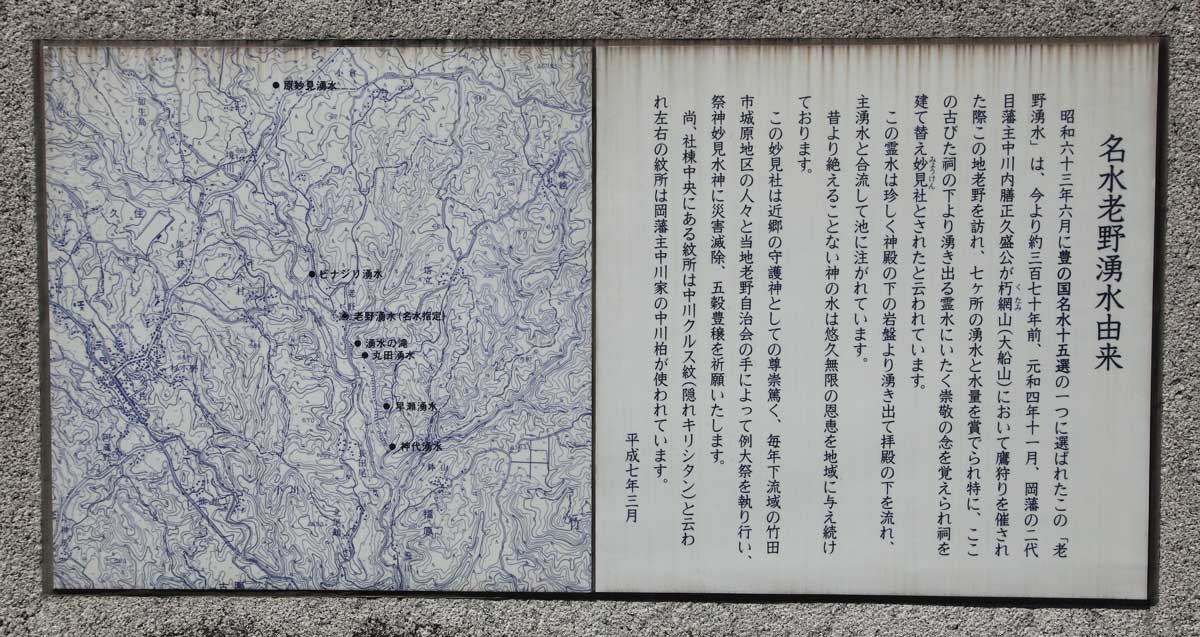 名水老野湧水由来
昭和六十三年六月に豊の国名水十五選の一つに選ばれたこの「老
野湧水」は、今より約三百七十年前、元和四年十一月、岡藩の二代
目藩主中川内膳正久盛公が朽網山(大船山)において鷹狩りを催され
くたみ
た際この地老野を訪れ、七ヶ所の湧水と水量を賞でられ特に、ここ
の古びた祠の下より湧き出る霊水にいたく崇敬の念を覚えられ祠を
建て替え妙見社とされたと云われています。
みょうけん
この霊水は珍しく神殿の下の岩盤より湧き出て拝殿の下を流れ、
主湧水と合流して池に注がれています。
昔より絶えることない神の水は悠久無限の恩恵を地域に与え続け
ております。
この妙見社は近郷の守護神としての尊崇篤く、毎年下流域の竹田
市城原地区の人々と当地老野自治会の手によって例大祭を執り行い、
祭神妙見水神に災害滅除、五穀豊穣を祈願いたします。
尚、社棟中央にある紋所は中川クルス紋(隠れキリシタン)と云わ
れ左右の紋所は岡藩主中川家の中川柏が使われています。
平成七年三月
原妙見湧水
ヒナジリ湧水
老野湧水(名水指定)
湧水の滝
丸田湧水
早瀬湧水
神代湧水
小倉
久住